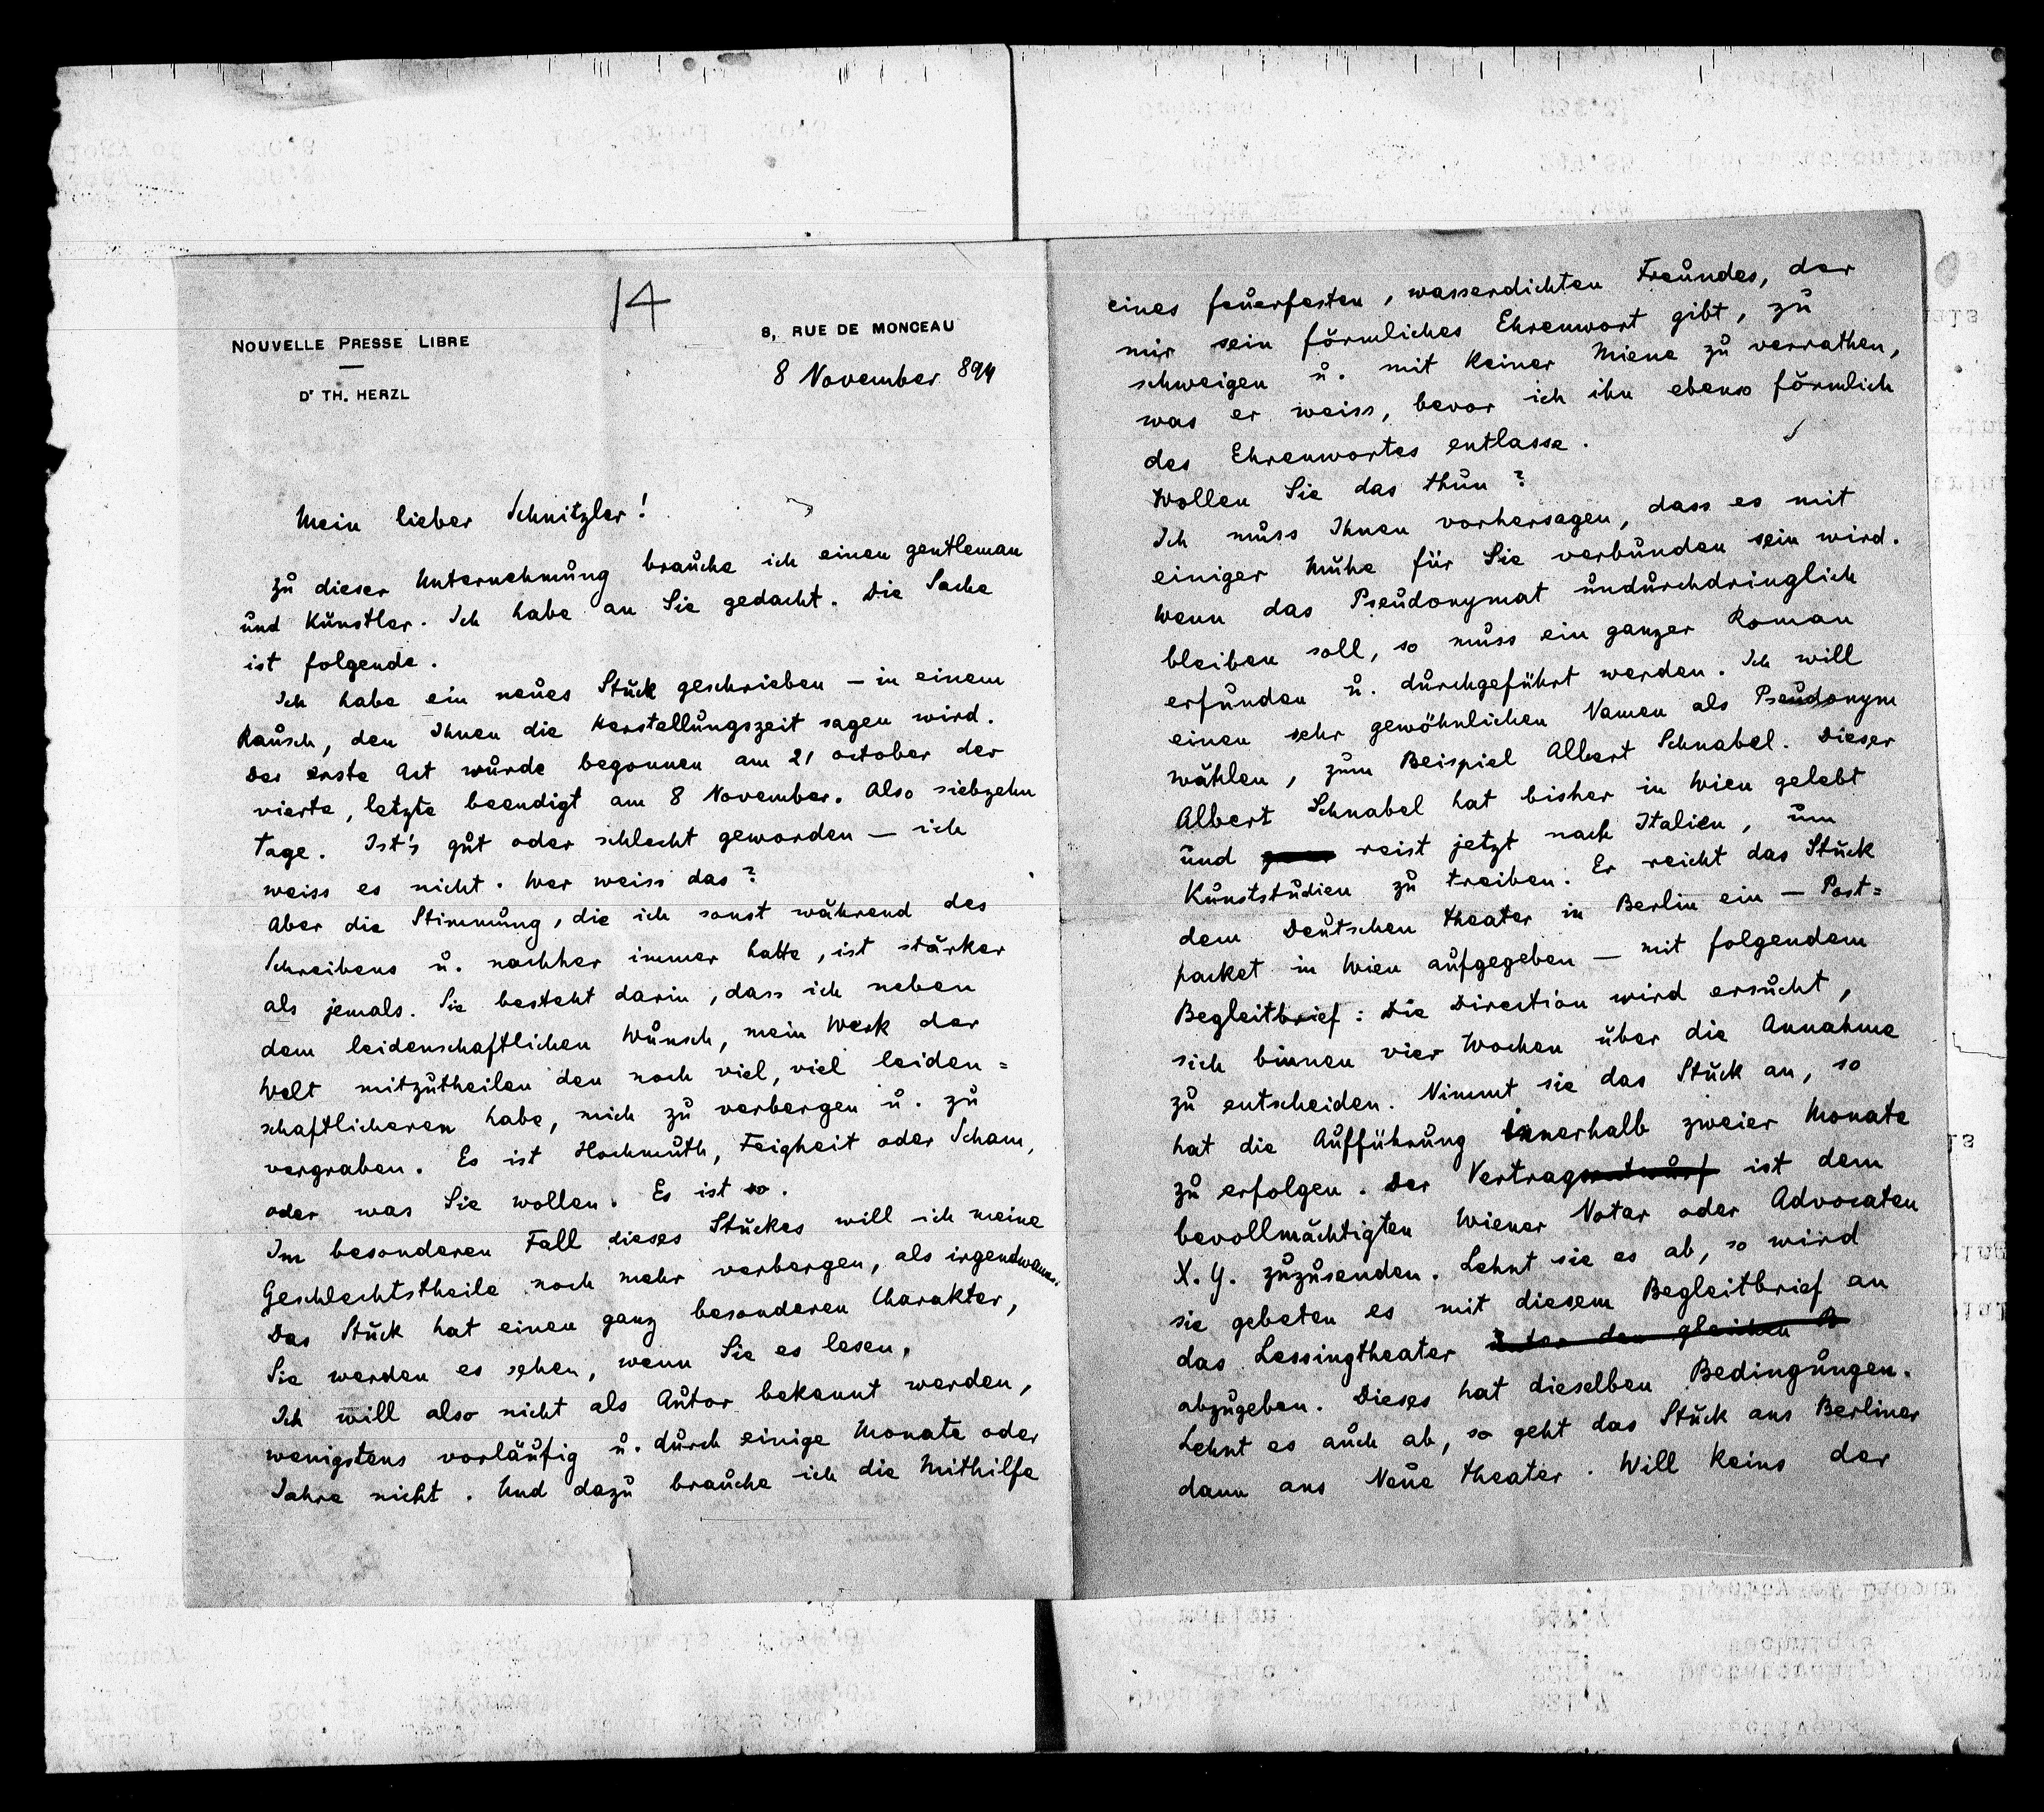 14
NOUVELLE PRESSE LIBRE
Dr TH. HERZL
8, RUE DE MONCEAU
8 November 894
Mein lieber Schnitzler!
Zu dieser Unternehmung brauche ich einen gentleman
und Künstler. Ich habe an Sie gedacht. Die Sache
ist folgende.
Ich habe ein neues Stück geschrieben — in einem
Rausch, den Ihnen die Herstellungszeit sagen wird.
Der erste Act wurde begonnen am 21 october der
vierte, letzte beendigt am 8 November. Also siebzehn
Tage. Ist's gut oder schlecht geworden — ich
weiss es nicht. Wer weiss das?
Aber die Stimmung, die ich sonst während des
Schreibens u. nachher immer hatte, ist stärker
als jemals. Sie besteht darin, dass ich neben
dem leidenschaftlichen Wunsch, mein Werk der
Welt mitzutheilen den noch viel, viel leiden=
schaftlicheren habe, mich zu verbergen u. zu
vergraben. Es ist Hochmuth, Feigheit oder Scham,
oder was Sie wollen. Es ist so.
Im besonderen Fall dieses Stückes will ich meine
Geschlechtstheile noch mehr verbergen, als irgendwann.
Das Stück hat einen ganz besonderen Charakter,
Sie werden es sehen, wenn Sie es lesen.
Ich will also nicht als Autor bekannt werden,
wenigstens vorläufig u. durch einige Monate oder
Jahre nicht. Und dazu brauche ich die Mithilfe
eines feuerfesten, wasserdichten Freundes, der
mir sein förmliches Ehrenwort gibt, zu
schweigen u. mit keiner Miene zu verrathen,
was er weiss, bevor ich ihn ebenso förmlich
des Ehrenwortes entlasse.
Wollen Sie das thun?
Ich muss Ihnen vorhersagen, dass es mit
einiger Mühe für Sie verbunden sein wird.
Wenn das Pseudonymat undurchdringlich
bleiben soll, so muss ein ganzer Roman
erfunden u. durchgeführt werden. Ich will
einen sehr gewöhnlichen Namen als Pseudonym
wählen, zum Beispiel Albert Schnabel. Dieser
Albert Schnabel hat bisher in Wien gelebt
und reist jetzt nach Italien, um
Kunststudien zu treiben. Er reicht das Stück
dem Deutschen Theater in Berlin ein — Post=
packet in Wien aufgegeben — mit folgendem
Begleitbrief: Die Direction wird ersucht,
sich binnen vier Wochen über die Annahme
zu entscheiden. Nimmt sie das Stück an, so
hat die Aufführung innerhalb zweier Monate
zu erfolgen. Der Vertragsentwurf ist dem
bevollmächtigten Wiener Notar oder Advocaten
X. Y. zuzusenden. Lehnt sie es ab, so wird
sie gebeten es mit diesem Begleitbrief an
das Lessingtheater unter den gleichen B
abzugeben. Dieses hat dieselben Bedingungen.
Lehnt es auch ab, so geht das Stück ans Berliner
dann ans Neue Theater. Will keins der